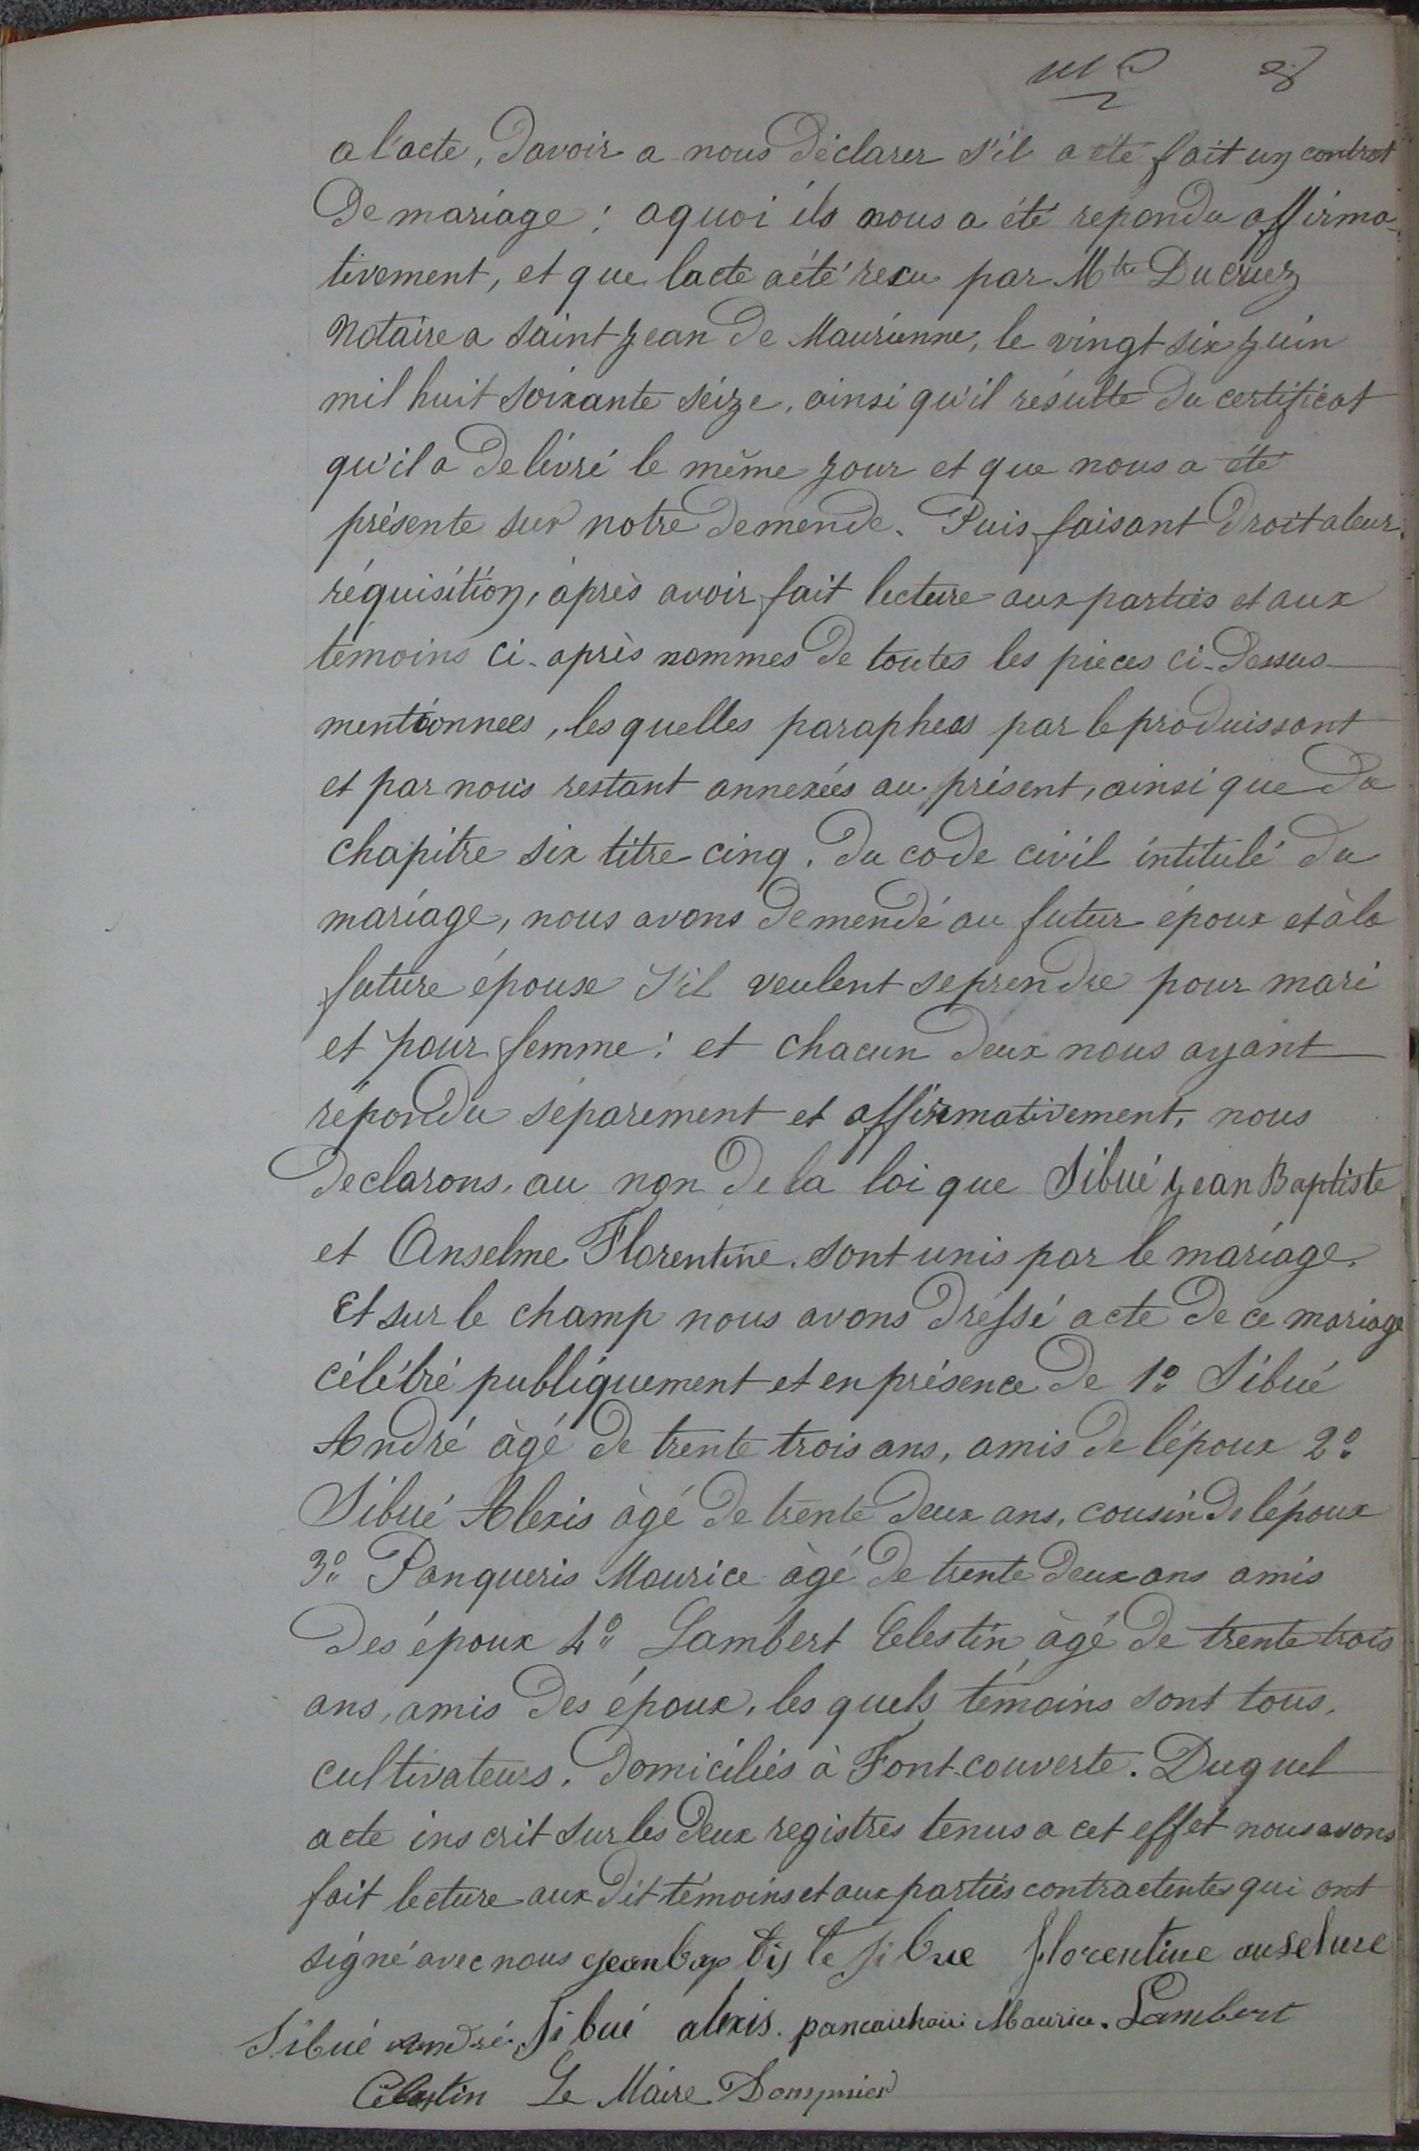 a l'acte, Davoir a nous Déclarer s'il a été fait un contrat
De mariage ; aquoi ils nous a été repondu affirma-
tivement, et que lacte aété recu par Mtre Ducruez
Notaire a saint Jean De Maurienne, le vingt six Juin
mil huit soixante seize, ainsi qu'il résulte Du certificat
qu'il a Delivré le même Jour et que nous a été
présente sur notre Demende. Puis faisant Droit aleur
réquisition, après avoir fait lecture aux parties et aux
témoins ci-après nommes De toutes les pieces ci-Dessus
mentionnees, les quelles paraphees par le produissant
et par nous restant annexées au présent, ainsi que Du
chapitre six titre cinq. Du code civil intitulé Du
mariage, nous avons Demendé au futur époux et à la
future épouse s'il veulent seprendre pour mari
et pour femme : et chacun Deux nous ayant
répondu séparement et affirmativement, nous
Declarons, au non De la loi que Sibué Jean Baptiste
et Anselme Florentine. sont unis par le mariage.
Et sur le champ nous avons Dressé acte De ce mariage
célébré publiquement et en présence De 1º Sibué
André àgé De trente trois ans, amis De l'époux 2º
Sibué Alexis àgé De trente Deux ans, cousin De l'époux
3º Panqueris Maurice àgé De trente Deux ans amis
Des époux 4º Lambert Celestin àgé De trente trois
ans, amis Des époux, les quels témoins sont tous,
cultivateurs. Domiciliés à Font-couverte. Duquel
acte inscrit sur les Deux registres tenus a cet effet nous avons
fait lecture aux Dit témoins et aux parties contractentes qui ont
signé avec nous jean baptiste sibue florentine anselme
Sibué André. Sibué alexis. Maurice. Lambert
Célestin Le Maire Dompnier